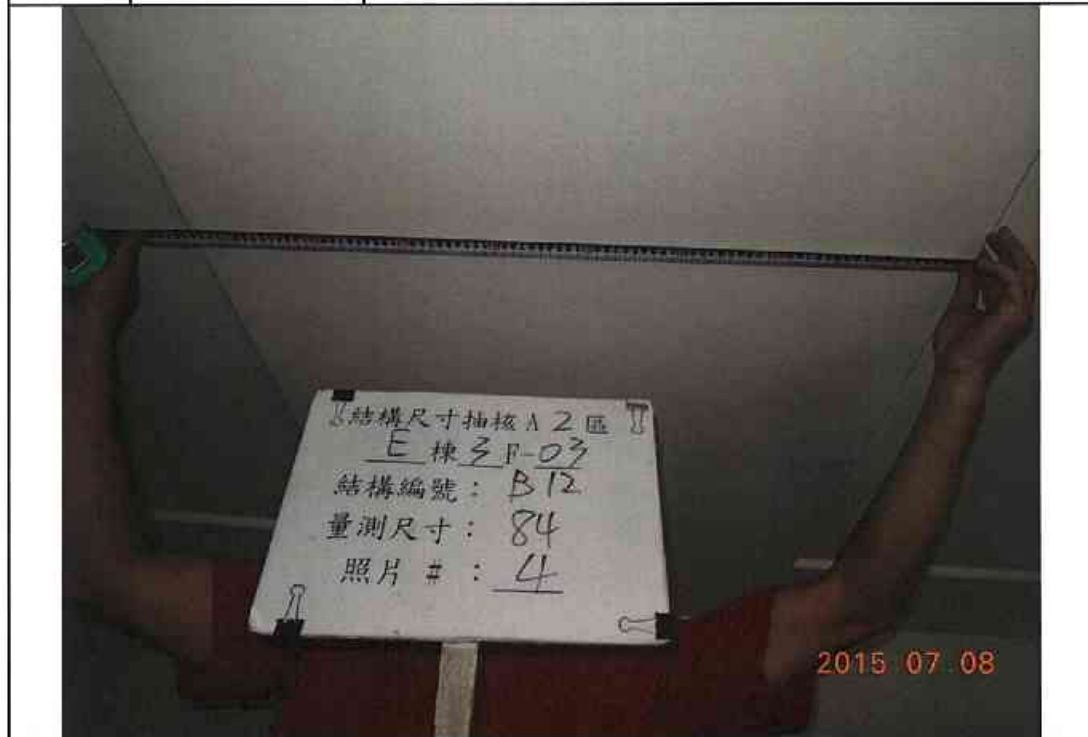 結構尺寸抽核 A 2 區
E 棟 3 F-03
結構編號: B12
量測尺寸: 84
照片 #: 4
2015 07 08